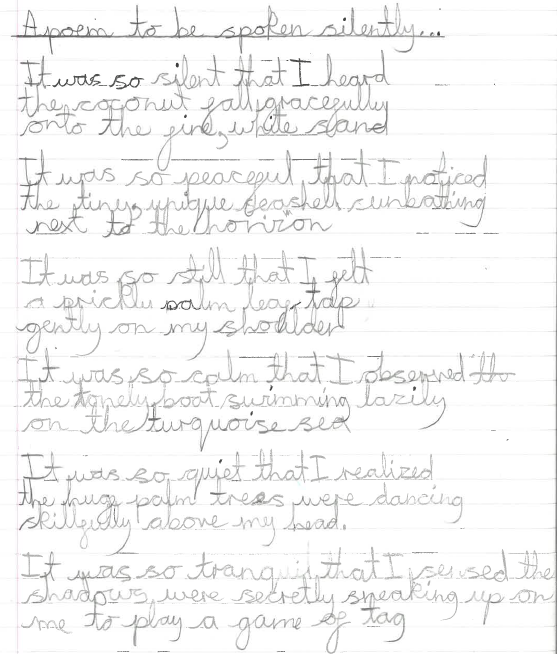 A poem to be spoken silently...
It was so silent that I heard
the coconut fall gracefully
onto the fine, white sand
It was so peaceful that I noticed
the tiny, unique seashell sunbathing
next to the horizon
It was so still that I felt
a prickly palm leaf tap
gently on my shoulder
It was so calm that I observed the
the lonely boat swimming lazily
on the turquoise sea
It was so quiet that I realized
the huge palm trees were dancing
skilfully above my head.
It was so tranquil that I sensed the
shadows were secretly sneaking up on
me to play a game of tag